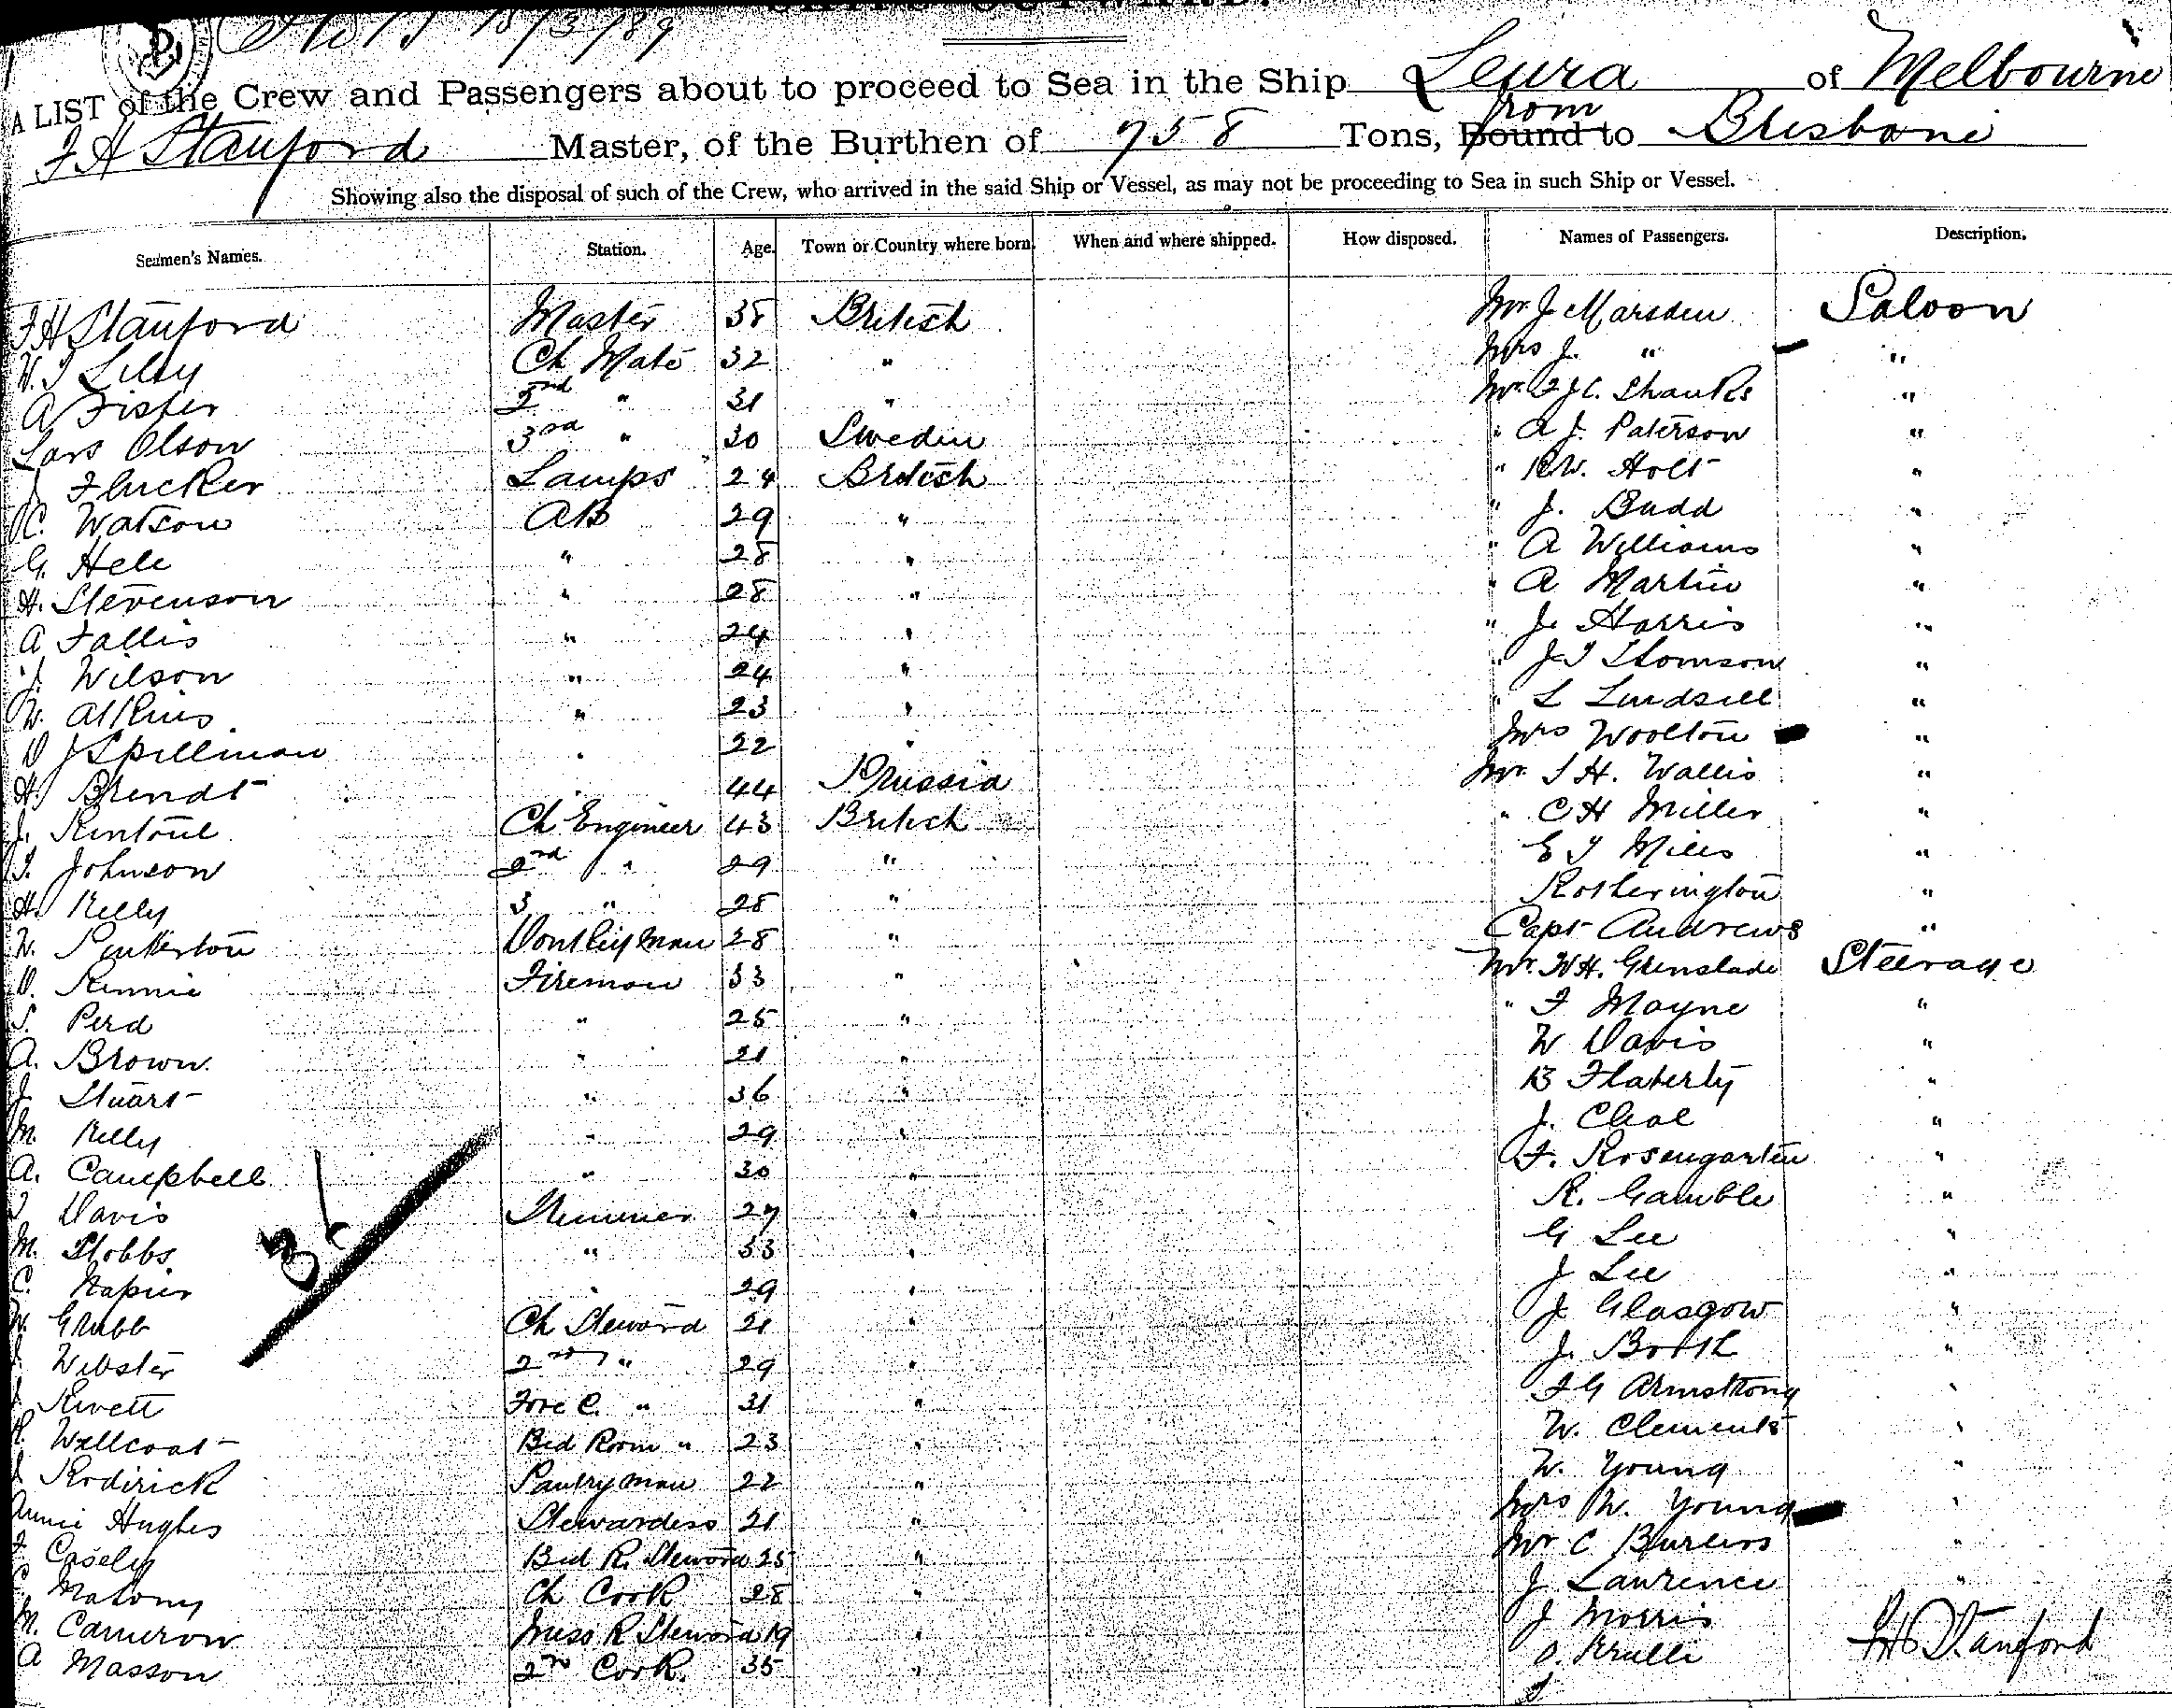 15/3/89
A LIST of the Crew and Passengers about to proceed to Sea in the Ship Leura of Melbourne
from
F H Stanford Master, of the Burthen of 758 Tons, Bound to Brisbane
Showing also the disposal of such of the Crew, who arrived in the said Ship or Vessel, as may not be proceeding to Sea in such Ship or Vessel.
Seamen's Names. Station. Age. Town or Country where born. When and where shipped. How disposed. Names of Passengers. Description.
F H Stanford Master 38 British Mr J Marsden Saloon
Ch Mate 32 " Mrs J. " "
A Fisher 2nd " 31 " Mr F J C. Shanks "
Lars Olson 3rd " 30 Sweden " A J. Paterson "
J Flucker Lamps 24 British " R W. Holt "
C. Watson AB 29 " " J. Budd "
G. Hele " 28 " " A Williams "
H. Stevenson " 28 " " A Martin "
A Fallis " 24 " " J. Harris "
J. Wilson " 24 " " J T Thomson "
W. Atkins " 23 " " L "
D J Spillman " 22 " Mrs Woolton "
H. Brendt " 44 Prussia Mr S H. Wallis "
J. Rintoul Ch Engineer 43 British " C H Miller "
T. Johnson 2nd " 29 " E T Miles "
H. Kelly 3 " 28 " Rotherington "
W. Pinkerton Donkeyman 28 " Capt Andrews "
D. Rennie Fireman 33 " Mr W H. Grenslade Steerage
S. Perd " 25 " " F Mayne "
A. Brown " 21 " W Davis "
J Stuart " 36 " B Flaherty "
M. Kelly " 29 " J. "
A. Campbell " 30 " F. Rosengarten "
T Davis Trimmer 27 " R. Gamble "
M. Stobbs " 33 " G Lee "
C. Napier " 29 " J Lee "
W. Grubb Ch Steward 21 " J Glasgow "
J Webster 2nd " 29 " J. Booth "
J Rivett Fore C. " 31 " F G Armstrong "
R. Wellcoat Bed Room " 23 " W. Clements "
J Roderick Pantryman 22 " W. Young "
Annie Hughes Stewardess 21 " Mrs W. Young "
F Casely Bed R. Steward 25 " Mr C "
Mahony Ch Cook 28 " J Lawrence "
M. Cameron Mess R Steward 19 " J Morris
A Masson 2nd Cook. 35 " O. Krulli
F H Stanford